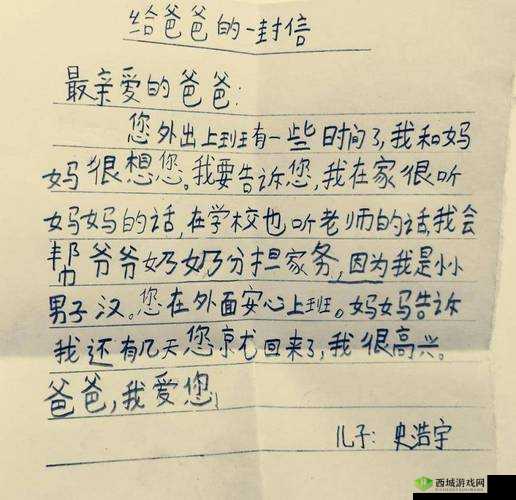 给爸爸的一封信
最亲爱的爸爸：
您外出上班有一些时间了，我和妈
妈很想您。我要告诉您，我在家很听
妈妈的话，在学校也听老师的话，我会
帮爷爷奶奶分担家务，因为我是小小
男子汉。您在外面安心上班。妈妈告诉
我还有几天您就回来了，我很高兴。
爸爸，我爱您！
儿子：史浩宇
西城游戏网